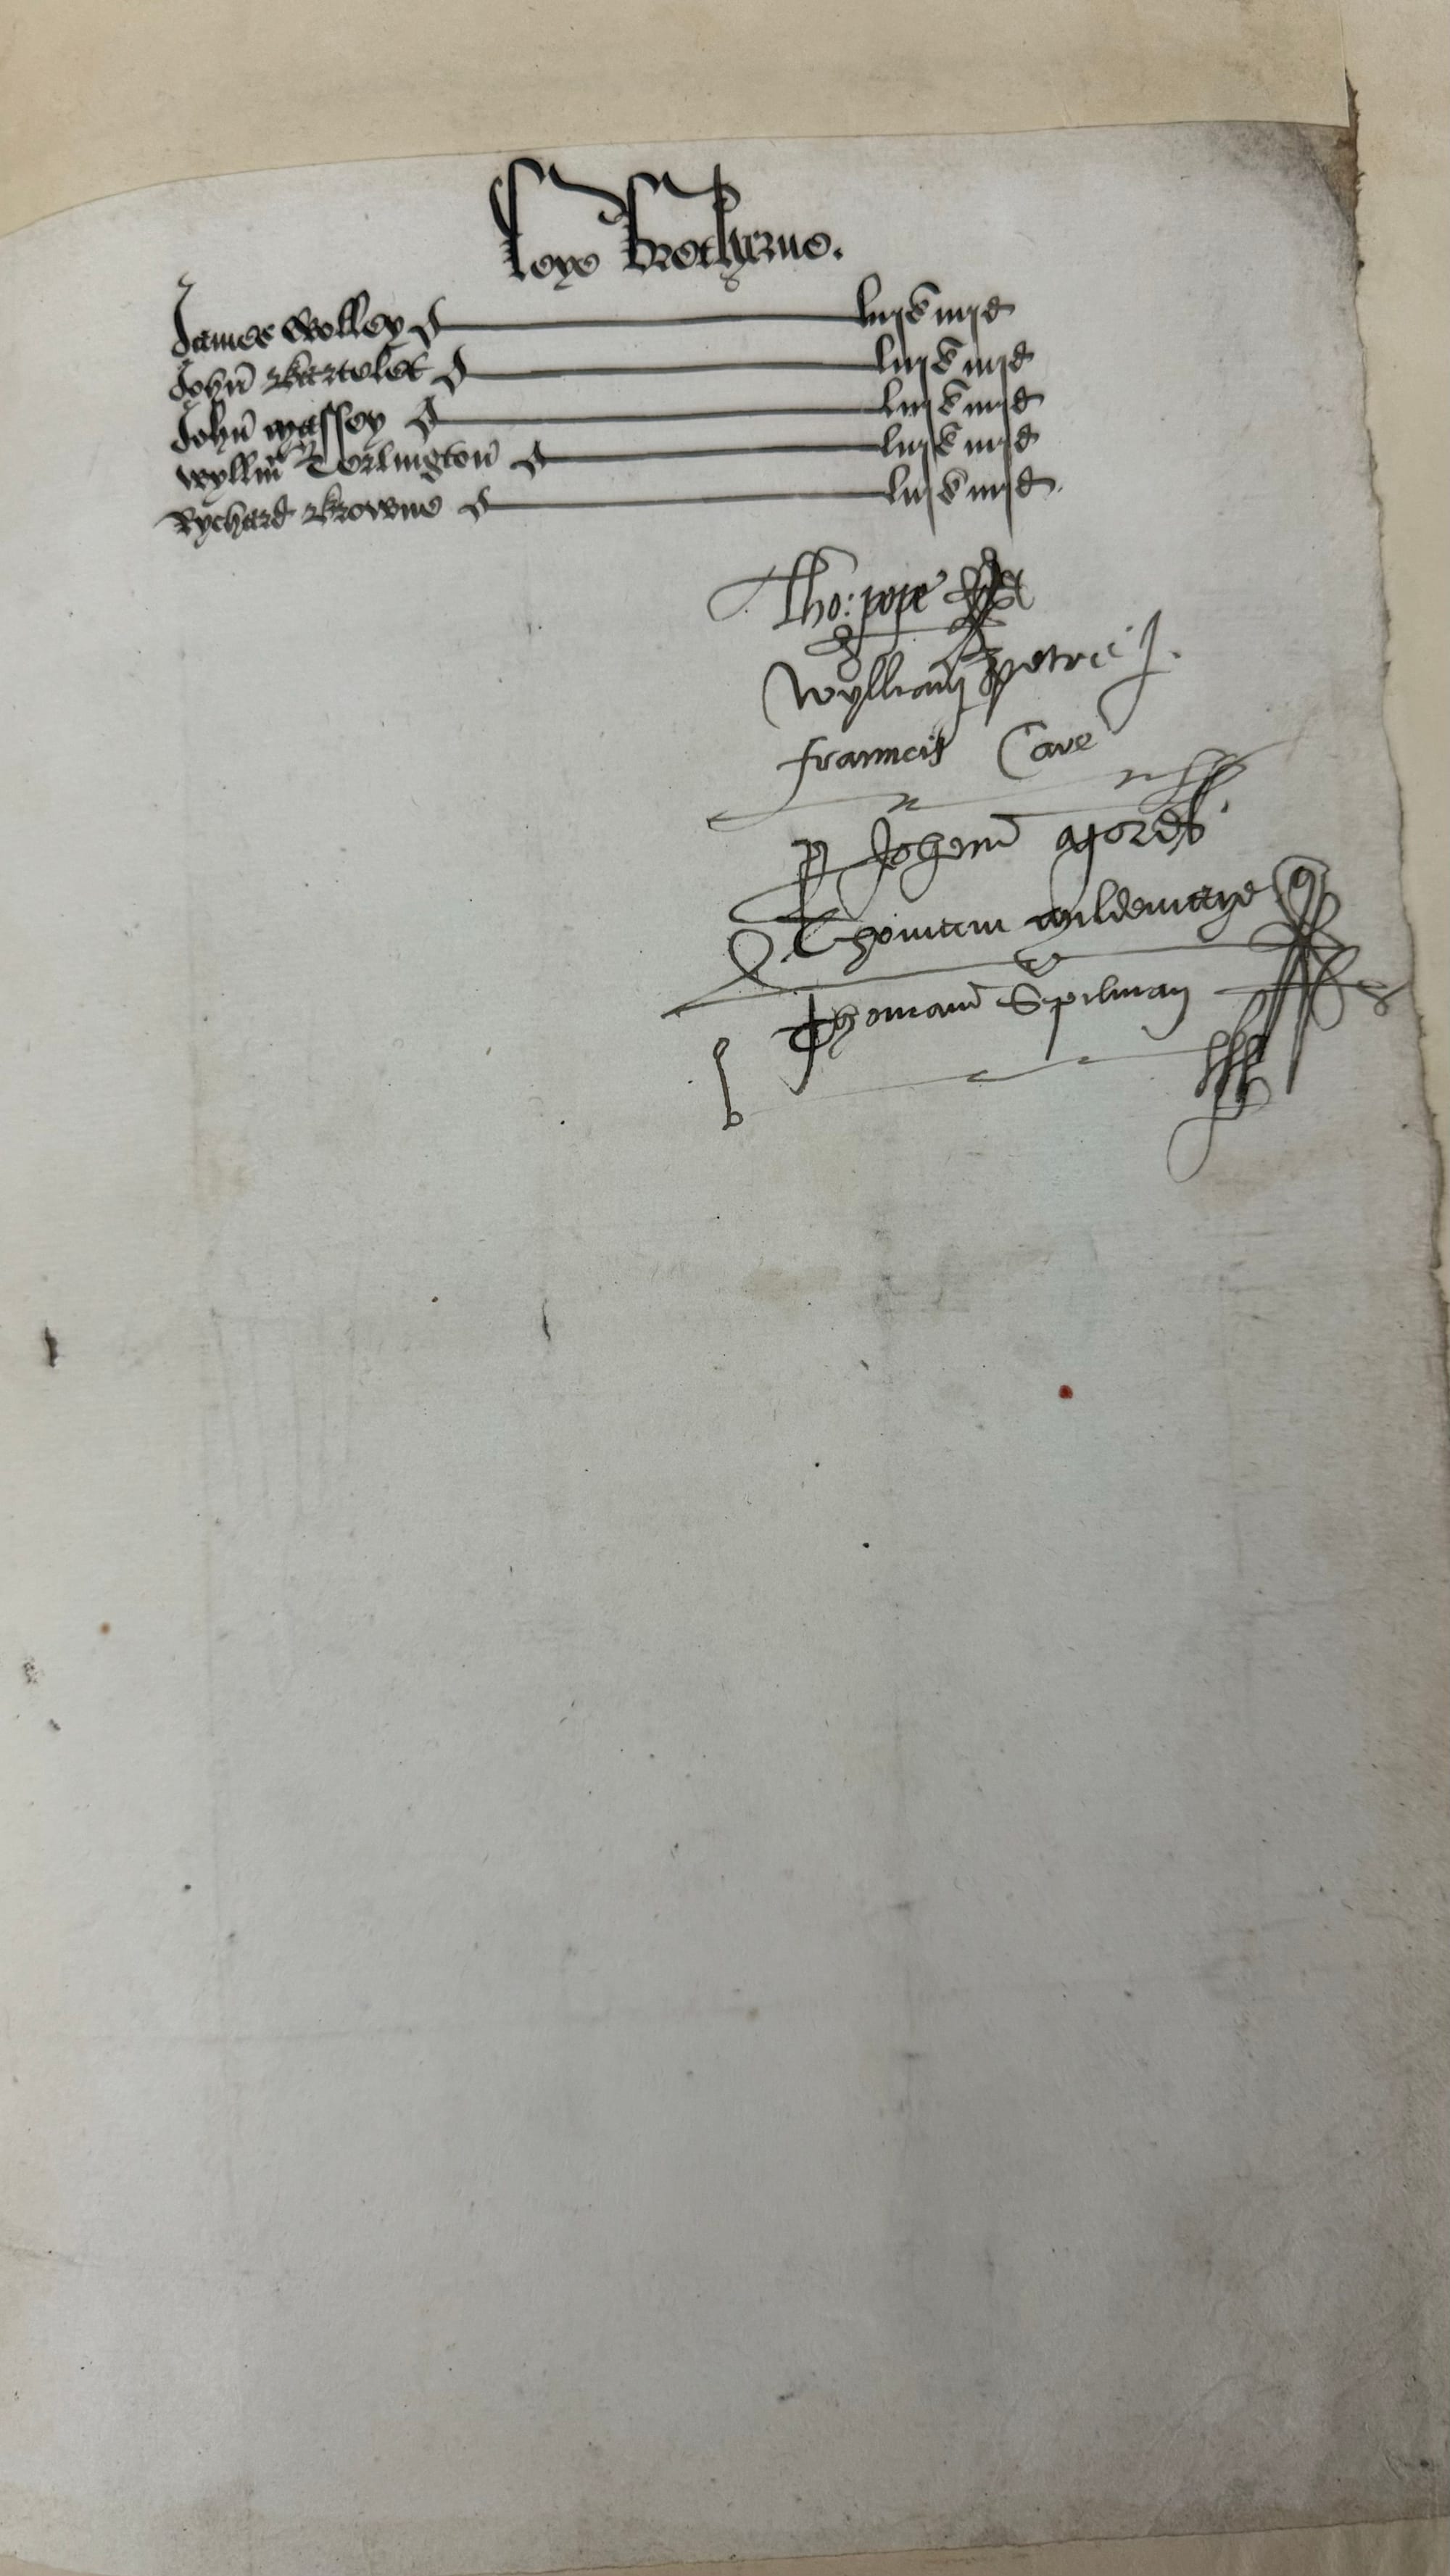 Leye Brotherne.
James Wolley liijs iiijd
John Bartelet liijs iiijd
John Massey liijs iiijd
Wyllm Torlington liijs iiijd
Rychard Browne liijs iiijd
Tho: pope
Wylliam petre
Francis Cave
p Johem
Thomam Myldemaye
Thomam Spilman